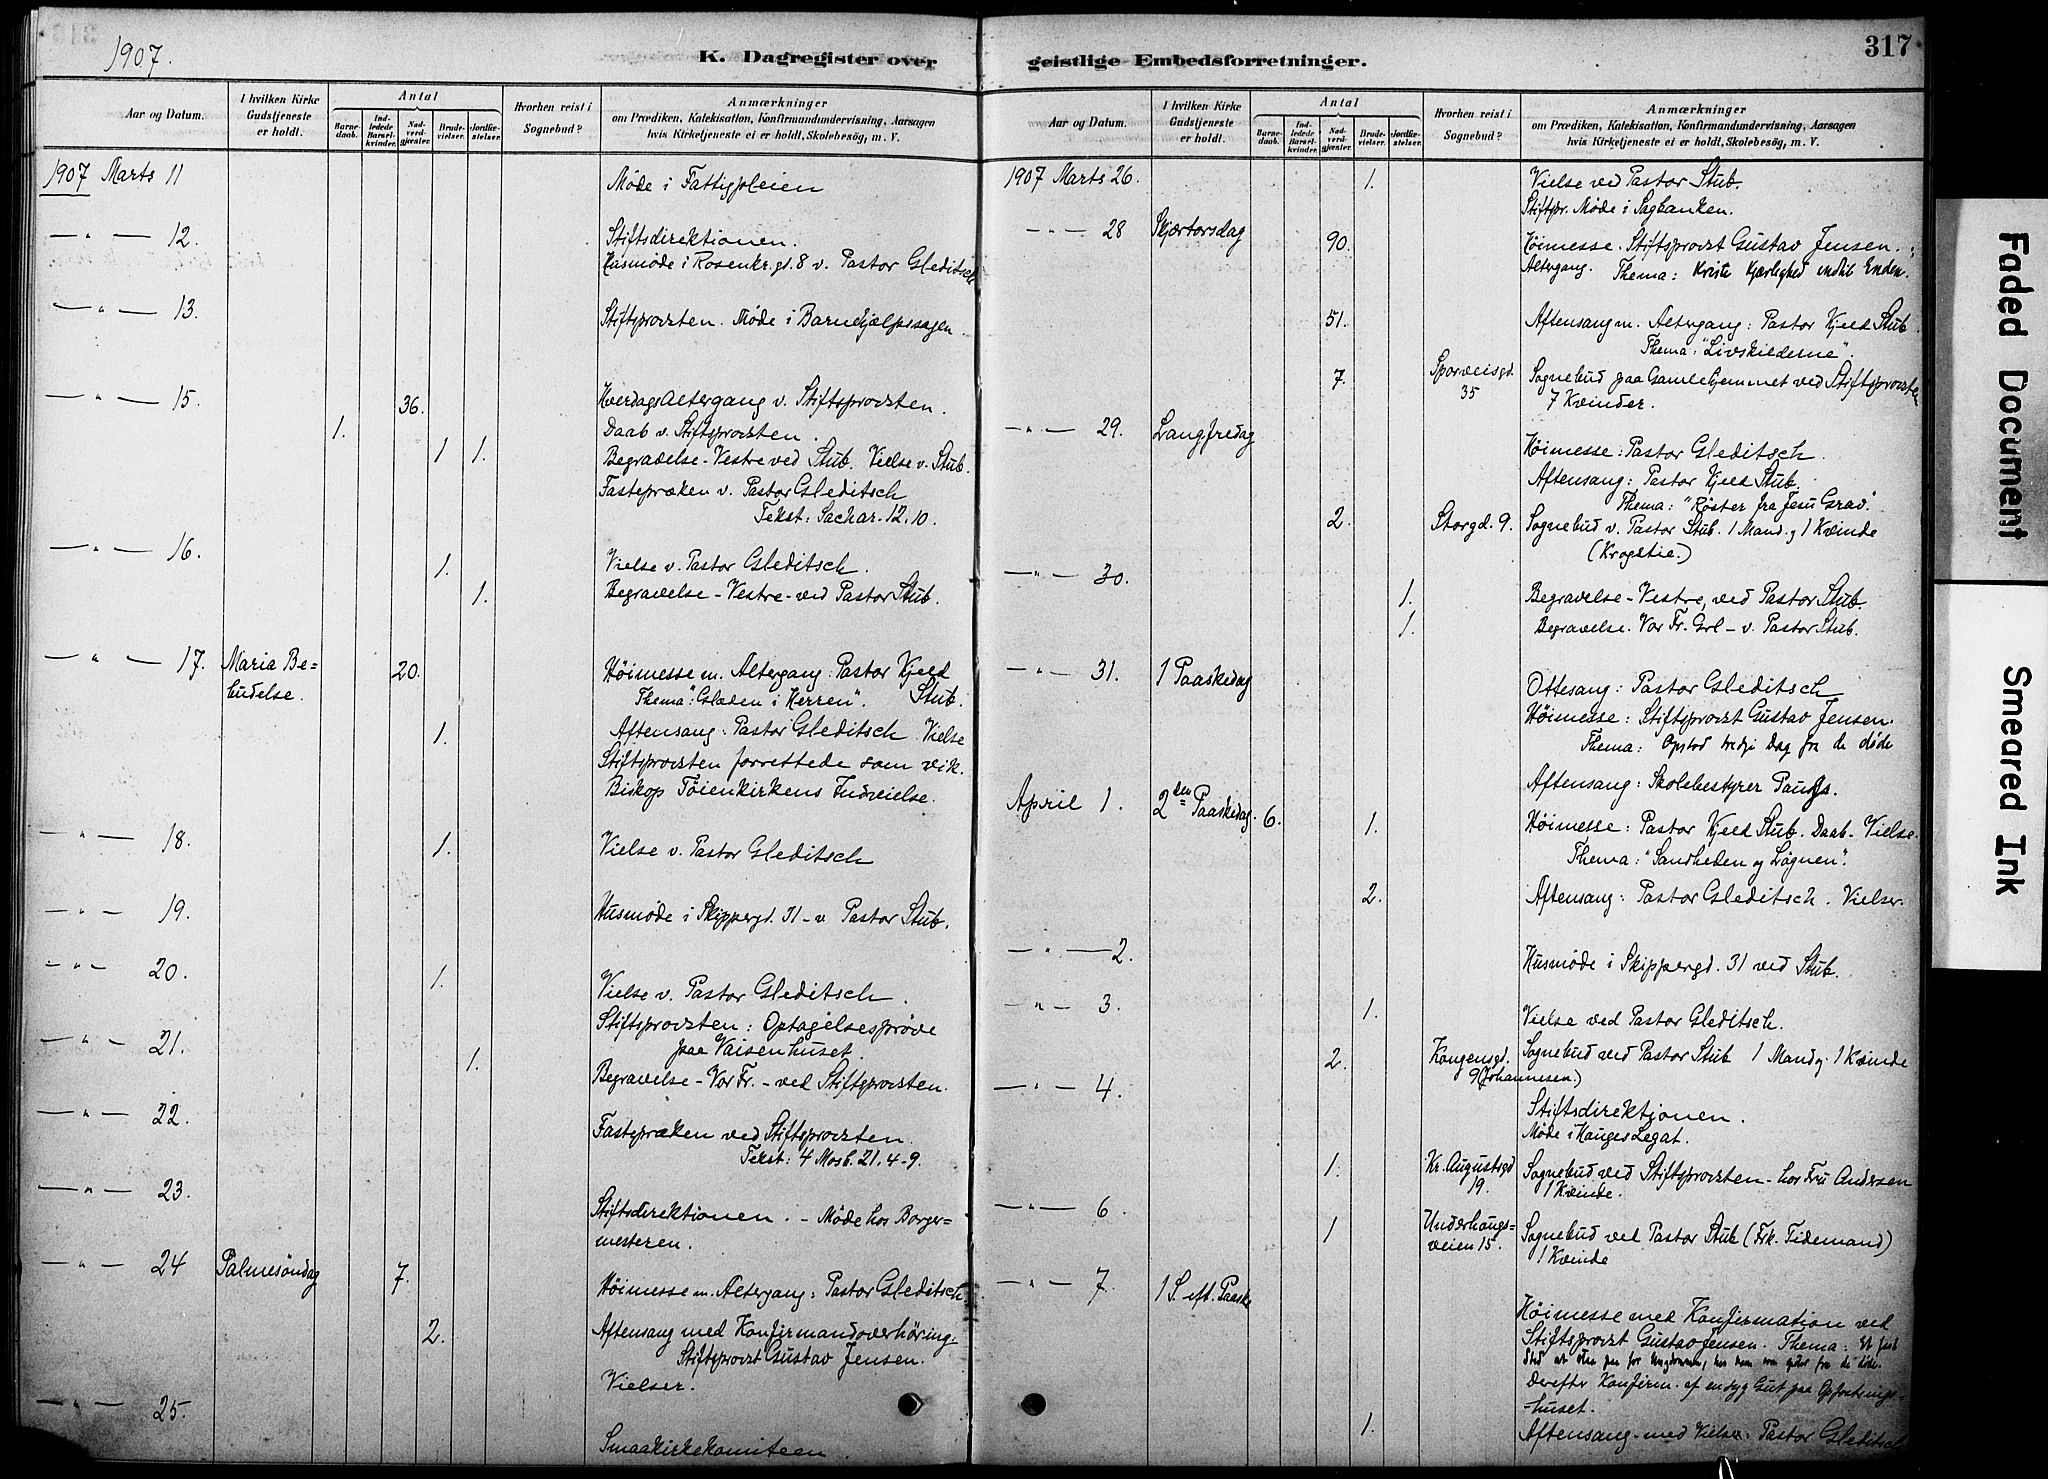 1907.
K. Dagregister over
Aar og Datum.
I hvilken Kirke Gudstjeneste er holdt.
Antal
Barnedaab.
Indledede Barselkvinder.
Nadverdgjæster.
Brudevielser.
Jordfæstelser.
Hvorhen reist i Sognebud?
Anmærkninger
om Prædiken, Katekisation, Konfirmandundervisning, Aarsagen
hvis Kirketjeneste ei er holdt, Skolebesøg, m. V.
1907 Marts 11 Møde i Fattigpleien
— " — 12. Stiftsdirektionen.
Husmøde i Rosenkr.gt. 8 v. Pastor Gleditsch
— " — 13. Stiftsprovsten. Møde i Barnehjælpssagen.
— " — 15. 36. HverdagsAltergang v. Stiftsprovsten.
1. Daab v. Stiftsprovsten.
1 1. Begravelse - Vestre ved Stub. Vielse v. Stub.
Fastepræken v. Pastor Gleditsch
Tekst: Sachar. 12.10.
— " — 16. 1. Vielse v. Pastor Gleditsch.
1. Begravelse - Vestre - ved Pastor Stub.
— " — 17. Maria Be= 20. Høimesse m. Altergang: Pastor Kjeld
budelse. Thema: "Glæden i Herren". Stub.
1. Aftensang: Pastor Gleditsch Vielse
Stiftsprovsten forrettede som vik.
Biskop Tøienkirkens Indvielse.
— " — 18. 1. Vielse v. Pastor Gleditsch
— " — 19. Husmøde i Skippergd. 31 - v Pastor Stub.
— " — 20. 1. Vielse v. Pastor Gleditsch.
Stiftsprovsten: Optagelsesprøve
— " — 21. paa Vaisenhuset.
1. Begravelse - Vor Fr. - ved Stiftsprovsten.
— " — 22. Fastepræken ved Stiftsprovsten.
Tekst: 4 Mosb. 21. 4-9.
— " — 23. Stiftsdirektionen. - Møde hos Borger=
mesteren.
— " — 24 Palmesøndag 7. Høimesse m. Altergang: Pastor Gleditsch.
2. Aftensang med Konfirmandoverhøring:
Stiftsprovst Gustav Jensen.
Vielser.
— " — 25. Smaakirkekomiteen
317
geistlige Embedsforretninger.
Aar og Datum.
I hvilken Kirke Gudstjeneste er holdt.
Antal
Barnedaab.
Indledede Barselkvinder.
Nadverdgjæster.
Brudevielser.
Jordfæstelser.
Hvorhen reist i Sognebud?
Anmærkninger
om Prædiken, Katekisation, Konfirmandundervisning, Aarsagen
hvis Kirketjeneste ei er holdt, Skolebesøg, m. V.
1907 Marts 26. 1. Vielse ved Pastor Stub.
Stiftspr. Møde i Sagbanken.
— " — 28 Skjærtorsdag 90. Høimesse. Stiftsprovst Gustav Jensen.
Altergang. Thema: Kristi Kjærlighed indtil Enden.
51. Aftensang m. Altergang: Pastor Kjeld Stub.
Thema: "Livskilderne".
7. Sporveisgd. 35 Sognebud paa Gamlehjemmet ved Stiftsprovsten
7 Kvinder.
— " — 29. Langfredag Høimesse: Pastor Gleditsch.
Aftensang: Pastor Kjeld Stub.
Thema: "Røster fra Jesu Grav".
2. Storgd. 9. Sognebud v. Pastor Stub. 1 Mand og 1 Kvinde
(Krogstie.)
— " — 30. 1. Begravelse - Vestre, ved Pastor Stub.
1. Begravelse. Vor Fr. Grl - v. Pastor Stub.
— " — 31. 1 Paaskedag Ottesang: Pastor Gleditsch
Høimesse: Stiftsprovst Gustav Jensen.
Thema: Opstod tredje Dag fra de døde
Aftensang: Skolebestyrer Paulss.
April 1. 2den Paaskedag. 6. 1. Høimesse: Pastor Kjeld Stub. Daab - Vielse.
Thema: "Sandheden og Løgnen".
2. Aftensang: Pastor Gleditsch. Vielser.
— " — 2. Husmøde i Skippergd. 31 ved Stub.
— " — 3. 1. Vielse ved Pastor Gleditsch.
2. Kongensgd. 9 Sognebud ved Pastor Stub 1 Mand og 1 Kvinde
(Johannesen.)
— " — 4. Stiftsdirektjonen.
Møde i Hauges Legat.
1. Kr. Augustsgd 19. Sognebud ved Stiftsprovsten - hos Fru Andersen
1 Kvinde.
— " — 6. 1 Underhaugs=veien 15. Sognebud ved Pastor Stub (Frk. Tidemand)
1 Kvinde
— " — 7. 1 S. eft. Paaske Høimesse med Konfirmation ved
Stiftsprovst Gustav Jensen. Thema: Et fast
Sted at staa paa for Ungdommen, hos ham som
Derefter Konfirm. af en syg Gut paa Opfostrings=
=huset.
1. Aftensang med Vielse: Pastor Gleditsch
Faded Document
Smeared Ink